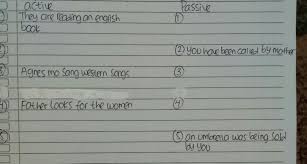 active Passive
They are reading an english (1)
book
(2) you have been called by mother
3 Agnes mo sang western songs (3)
4) Father looks for the women (4)
(5) an umbrella was being sold
by you